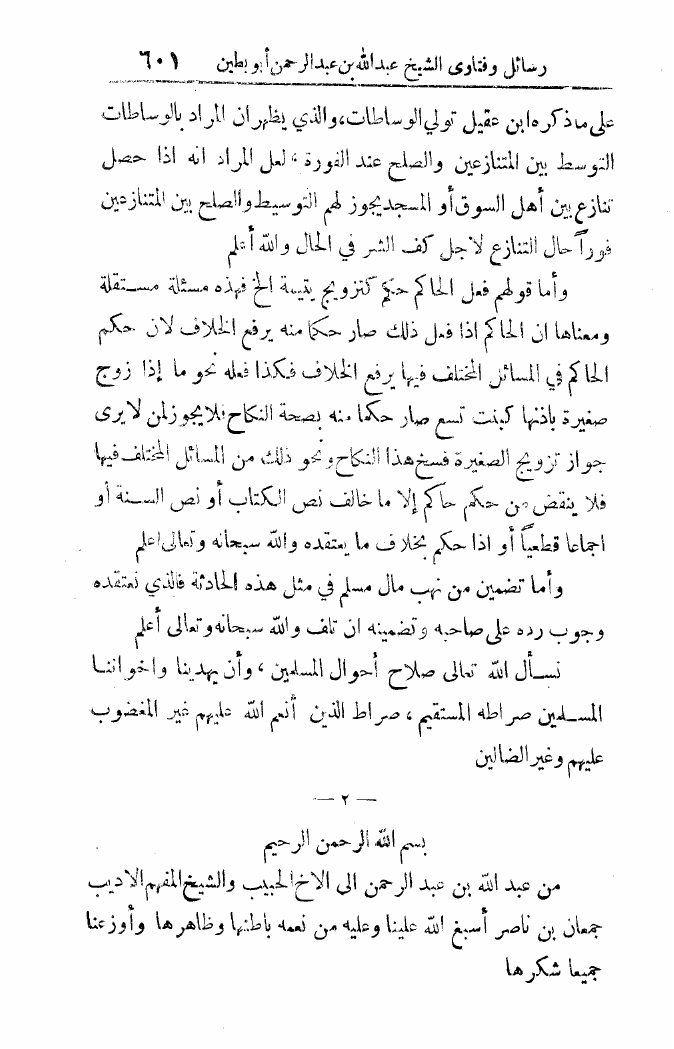 رسائل وفتاوى الشيخ عبدالله بن عبدالرحمن أبو بطين ٦٠١
على ما ذكره ابن عقيل تولي الوساطات، والذي يظهر ان المراد بالوساطات
التوسط بين المتنازعين والصلح عند الفورة، لعل المراد انه اذا حصل
تنازع بين أهل السوق أو المسجد يجوز لهم التوسيط والصلح بين المتنازعين
فوراً حال التنازع لاجل كف الشر في الحال والله أعلم
وأما قولهم فعل الحاكم حكم كتزويج يتيمة الخ فهذه مسئلة مستقلة
ومعناها ان الحاكم اذا فعل ذلك صار حكما منه يرفع الخلاف لان حكم
الحاكم في المسائل المختلف فيها يرفع الخلاف فكذا فعله نحو ما إذا زوج
صغيرة باذنها كبنت تسع صار حكما منه بصحة النكاح فلا يجوز لمن لا يرى
جواز تزويج الصغيرة فسخ هذا النكاح ونحو ذلك من المسائل المختلف فيها
فلا ينقض من حكم حاكم إلا ما خالف نص الكتاب أو نص السنة أو
اجماعا قطعياً أو اذا حكم بخلاف ما يعتقده والله سبحانه وتعالى اعلم
وأما تضمين من نهب مال مسلم في مثل هذه الحادثة فالذي نعتقده
وجوب رده على صاحبه وتضمينه ان تلف والله سبحانه وتعالى أعلم
نسأل الله تعالى صلاح أحوال المسلمين، وأن يهدينا واخواننا
المسلمين صراطه المستقيم، صراط الذين أنعم الله عليهم غير المغضوب
عليهم وغير الضالين
— ٢ —
بسم الله الرحمن الرحيم
من عبد الله بن عبد الرحمن الى الاخ الحبيب والشيخ المفهم الاديب
جمعان بن ناصر أسبغ الله علينا وعليه من نعمه باطنها وظاهرها وأوزعنا
جميعا شكرها